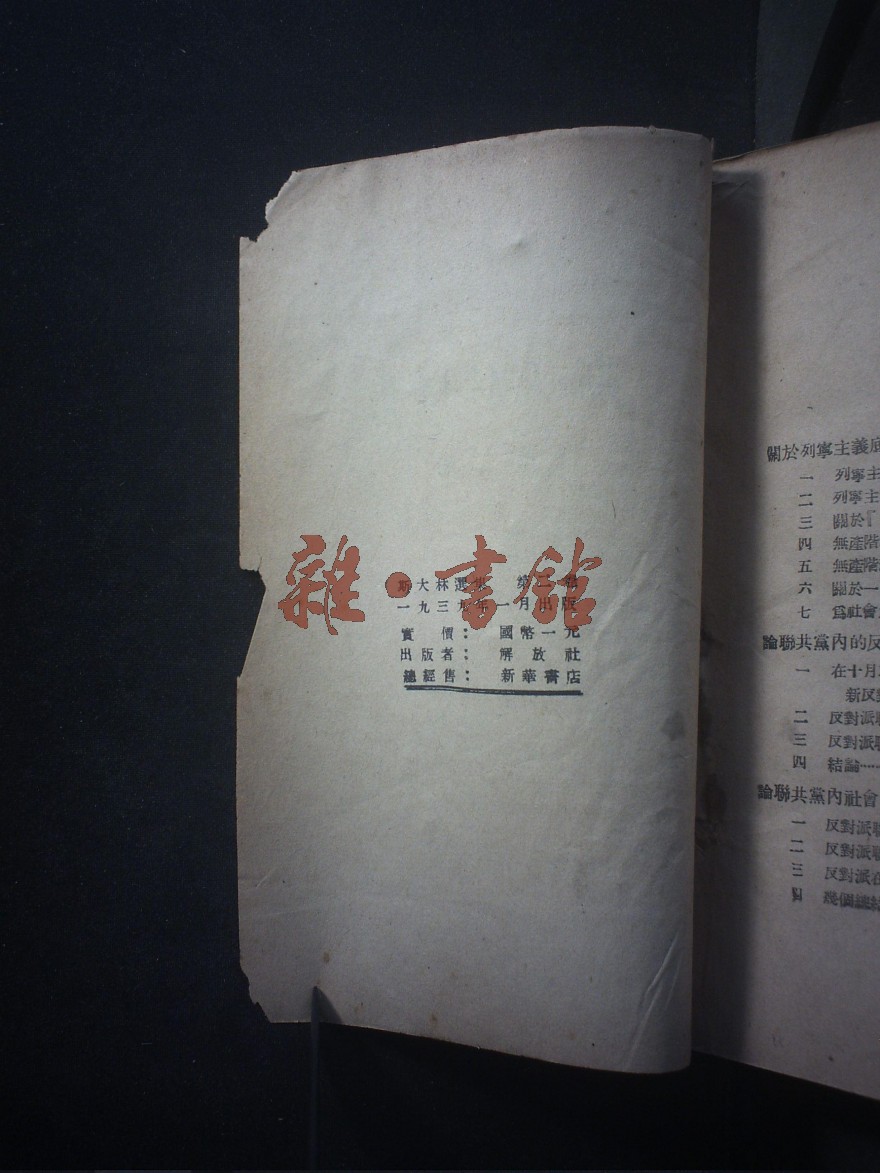 雜·書館
斯大林選集 第二卷
一九三九年一月出版
實價: 國幣一元
出版者: 解放社
總經售: 新華書店
關於列寧主義底
一 列寧主
二 列寧主
三 關於『
四 無產階
五 無產階
六 關於一
七 爲社會
論聯共黨內的反
一 在十月
新反對
二 反對派聯
三 反對派聯
四 結論……
論聯共黨內社會
一 反對派聯
二 反對派聯
三 反對派在
四 幾個總結